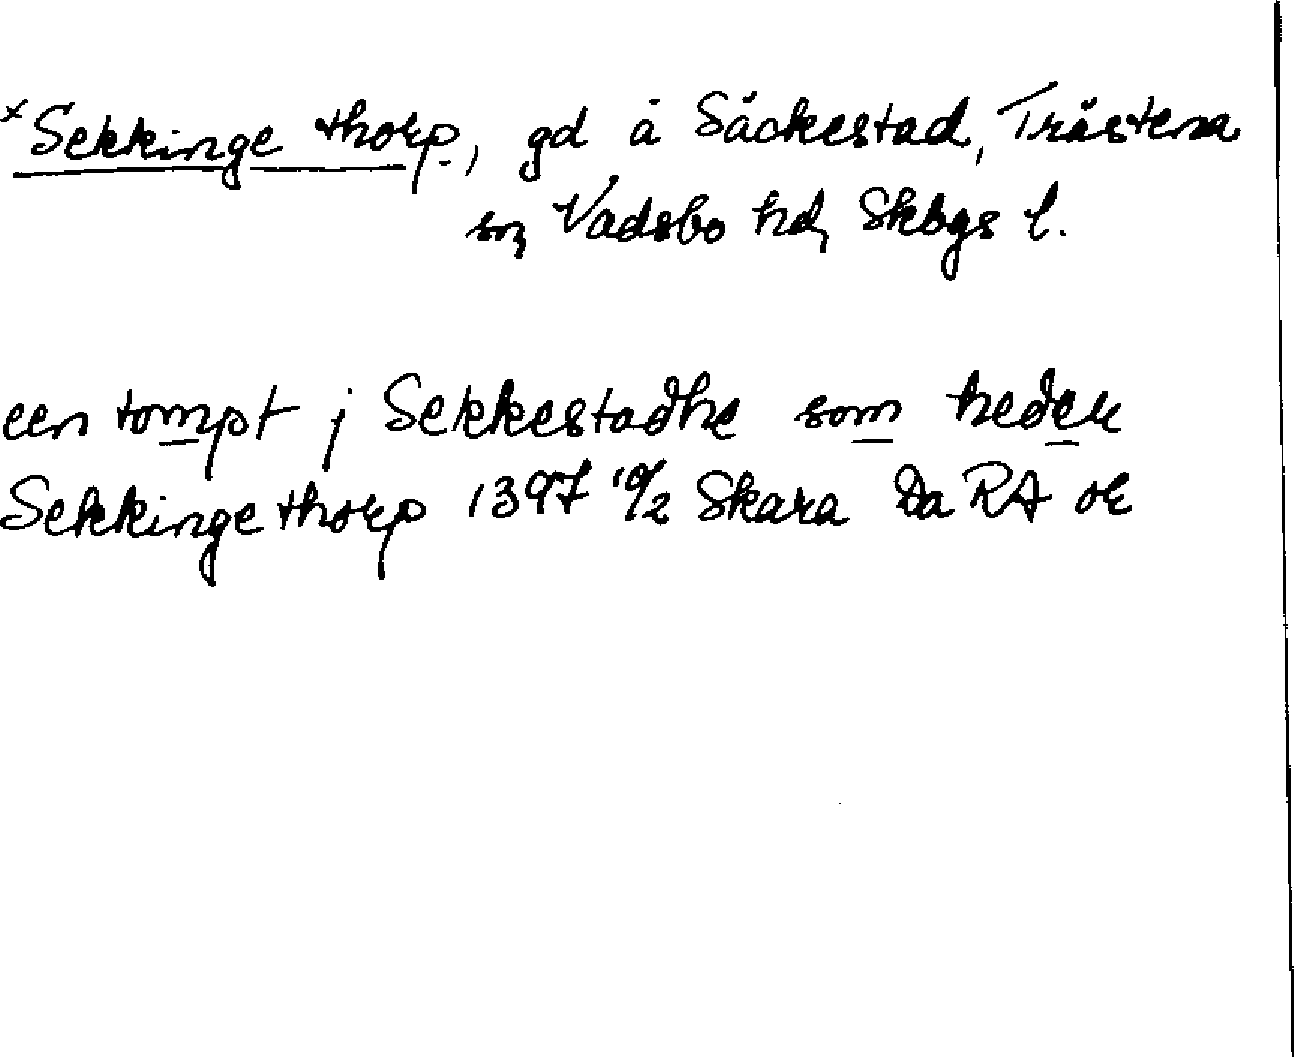 *Sekkinge thorp, gd å Säckestad, Trästena
sn, Vadsbo hd, Skbgs l.
een tompt j Sekkestadhe som heder
Sekkingethorp 1397 10/2 Skara Da RA or